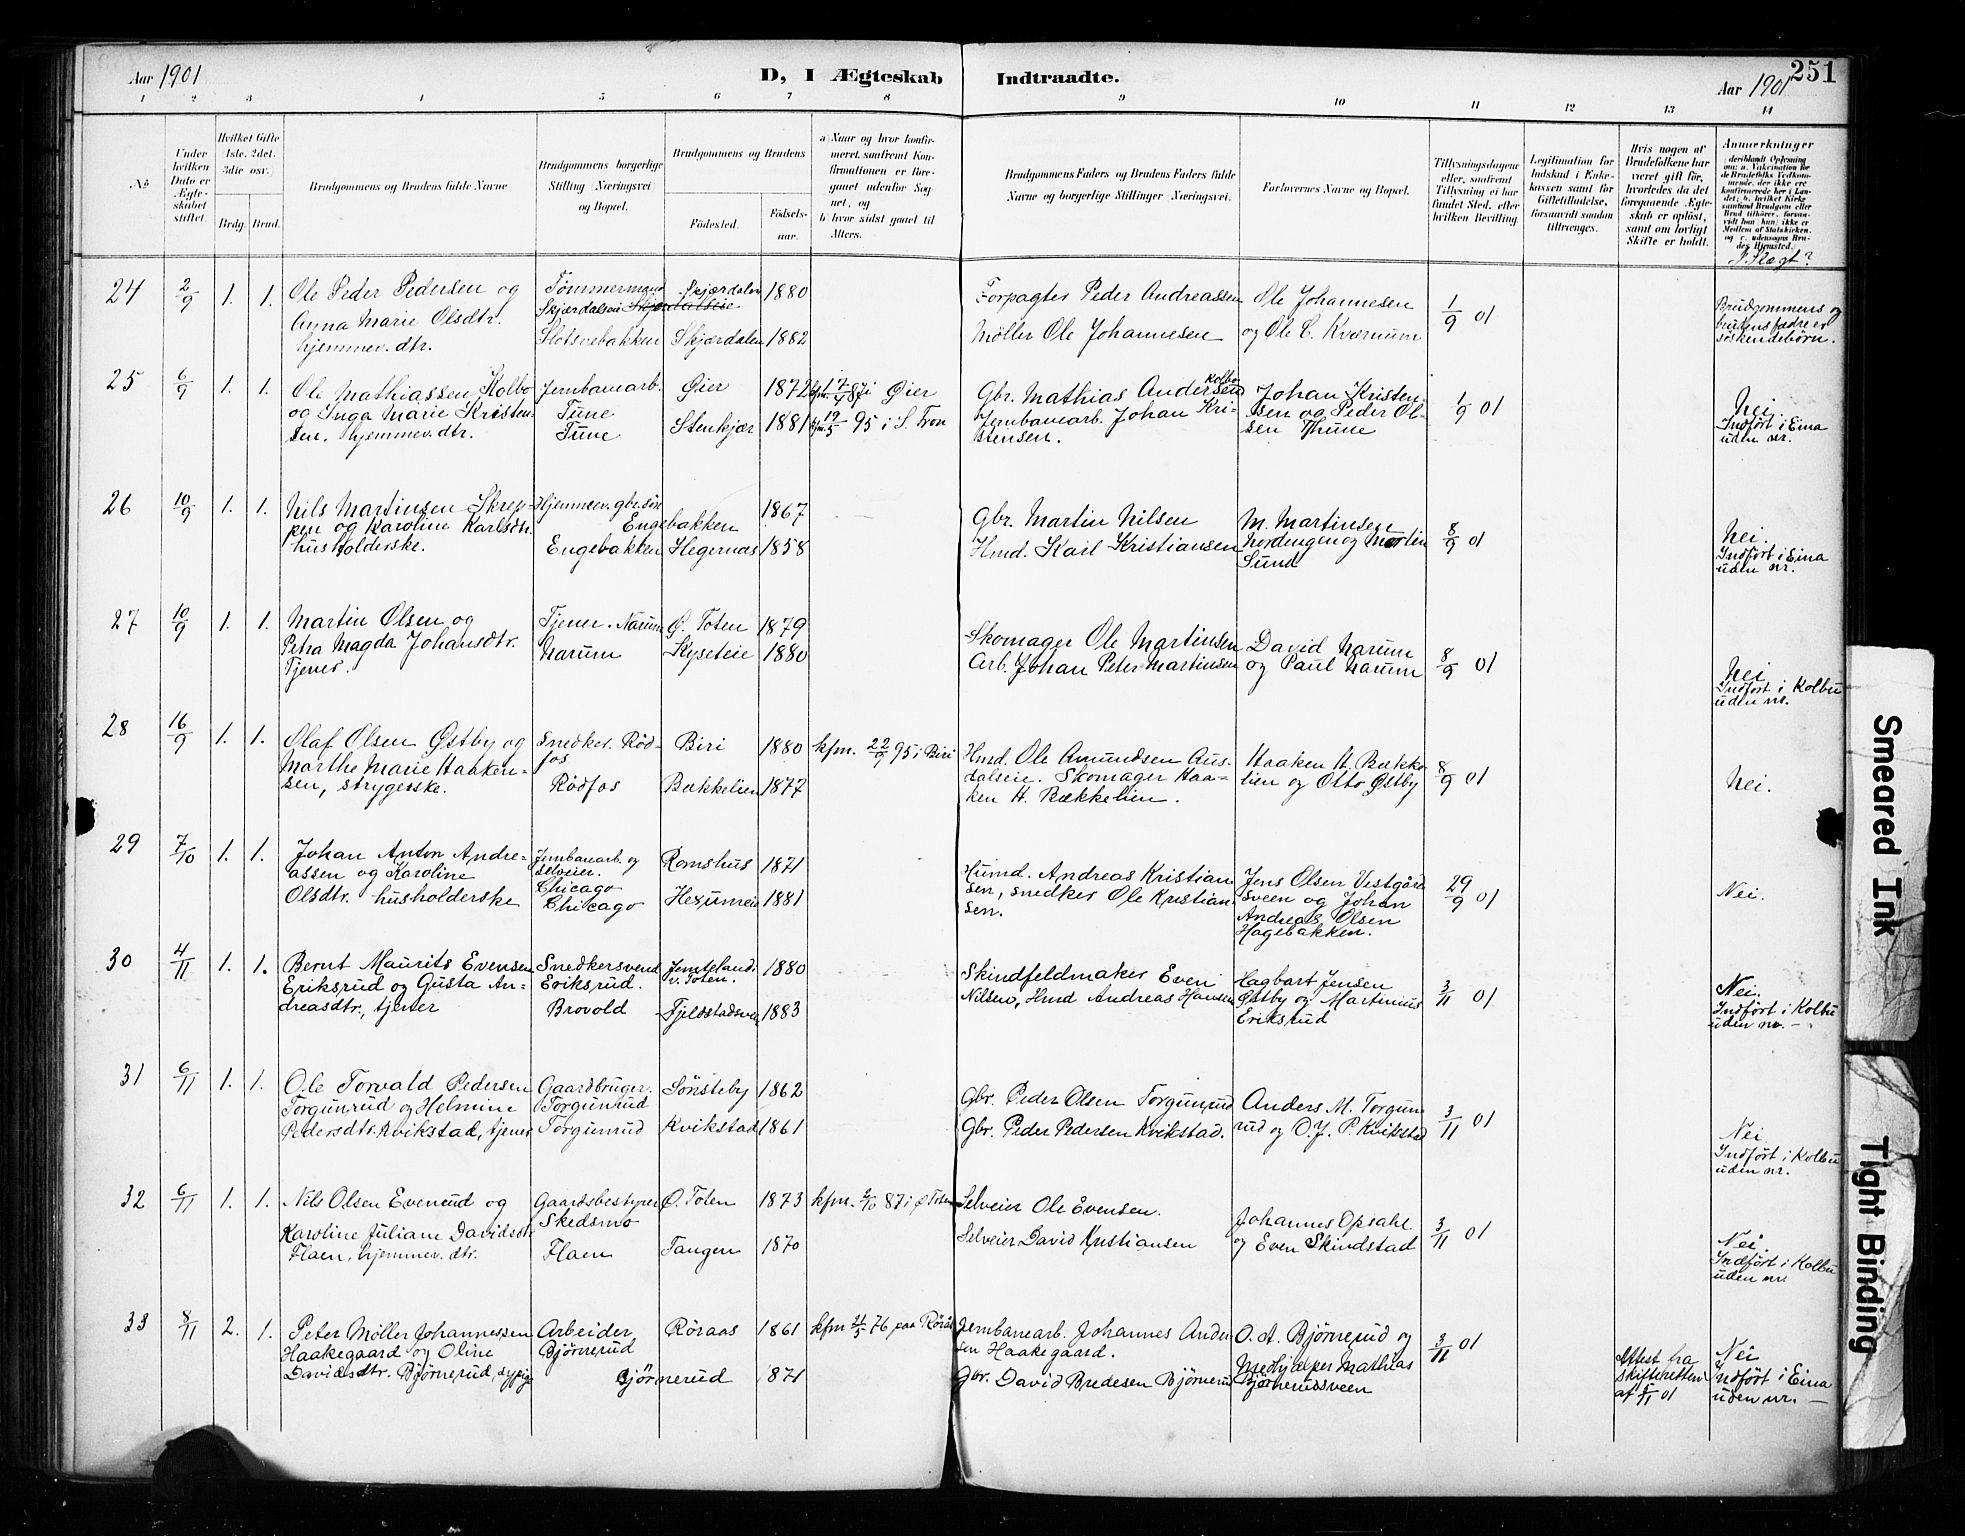 Aar 1901
D, I Ægteskab Indtraadte.
Aar 1901
251
1 2 3 4 5 6 7 8 9 10 11 12 13 14
No
Under hvilken Dato er Ægteskabet stiftet.
Hvilket Gifte 1ste, 2det, 3die osv.
Brdg. Brud.
Brudgommens og Brudens fulde Navne
Brudgommens borgerlige Stilling Næringsvei og Bopæl.
Brudgommens og Brudens
Födested.
Födsels-aar.
a) Naar og hvor konfirmeret, saafremt Konfirmationen er foregaaet udenfor Sognet, og
b) hvor sidst gaaet til Alters.
Brudgommens Faders og Brudens Faders fulde Navne og borgerlige Stillinger Næringsvei.
Forlovernes Navne og Bopæl.
Tillysningsdagene eller, saafremt Tillysning ei har fundet Sted, efter hvilken Bevilling.
Legitimation for Indskud i Enkekassen samt for Giftetilladelse, forsaavidt saadan tiltrænges.
Hvis nogen af Brudefolkene har været gift för, hvorledes da det foregaaende Ægteskab er oplöst, samt om lovligt Skifte er holdt.
Anmerkninger
deriblandt Oplysning om: a. Vakcination for de Brudefolks Vedkommende, der ikke ere konfirmerede her i Landet; b. hvilket Kirkesamfund Brudgom eller Brud tilhörer, forsaavidt han (hun) ikke er Medlem af Statskirken, og c. udensogns Brudes Hjemsted.
I Slægt?
24 2/9 1. 1. Ole Peder Pedersen og Tömmermand Skjærdalen 1880 Forpagter Peder Andreassen Ole Johannesen 1/9 01 Brudgommens og
Agna Marie Olsdtr. Skjærdalseie Skjærdalseie brudens fædre er
hjemmev. dtr. Slotsvebakken Skjærdalen 1882 Møller Ole Johannesen og Ole C. Kværnum söskendebörn.
25 6/9 1. 1. Ole Mathiassen Kolbo Jernbanearb. Øier 1872 kfm. 17/4 87 i Øier Gbr. Mathias Andersen Kolbo Johan Kristen- 1/9 01 Nei
og Inga Marie Kristen- Tune Stenkjær 1881 kfm. 19/5 95 i S. Fron Jernbanearb. Johan Kri- sen og Peder Ol- Indfört i Eina
sen. hjemmev. dtr. Tune stensen. sen Thune uden nr.
26 10/9 1. 1. Nils Martinsen Skrep- Hjemmev. gbr. sön 1867 Gbr. Martin Nilsen M. Martinsen 8/9 01 Nei.
pen og Karoline Karlsdtr. Engebakken Nordengen og Martin Indfört i Eina
husholderske. Engebakken Hegernas 1858 Hmd. Karl Kristiansen Sund uden nr.
27 10/9 1. 1. Martin Olsen og Tjener. Narum Ø. Toten 1879 Skomager Ole Martinsen David Narum 8/9 01 Nei
Petra Magda Johansdtr. Narum Kyseteie 1880 Arb. Johan Peter Martinsen og Paul Narum Indfört i Kolbu
Tjener. uden nr.
28 16/9 1. 1. Olaf Olsen Østby og Snedker. Röd- Biri 1880 kfm. 22/9 95 i Biri Hmd. Ole Amundsen Aus- Haaken H. Bække- 8/9 01
Marthe Marie Haaken- fos dalseie. Skomager Haa- lien og Otto Østby Nei.
sen, strygerske. Rödfos Bækkelien 1877 ken H. Bækkelien.
29 7/10 1. 1. Johan Anton Andre- Jernbanearb. og Romshus 1871 Husmd. Andreas Kristian- Jens Olsen Vestgård- 29/9 01 Nei.
assen og Karoline selveier. Chicago sen, snedker Ole Kristian- sveen og Johan
Olsdtr. husholderske Chicago Hexumeie 1881 sen. Andreas Olsen
Hagebakken.
30 4/11 1. 1. Bernt Maurits Evensen Snedkersvend Jemteland. 1880 Skindfeldmaker Even Hagbart Jensen 3/11 01 Nei.
Eriksrud og Gusta An- Eriksrud. V. Toten. Nilsen, Hmd Andreas Hansen Østby og Martinius Indfört i Kolbu
dreasdtr., tjener Brovold Fjeldstadsvei 1883 Eriksrud uden nr. —
31 6/11 1. 1. Ole Torvald Pedersen Gaardbruger. Sönsteby 1862 Gbr. Peder Olsen Torgunrud Anders M. Torgun- 3/11 01 Nei
Torgunrud og Helmine Torgunrud rud og O. J. P. Kvikstad Indfört i Kolbu
Pedersdtr. Kvikstad, tjener Torgunrud Kvikstad 1861 Gbr. Peder Pedersen Kvikstad. uden nr.
32 6/11 1. 1. Nils Olsen Evenrud og Gaardsbestyrer Ø. Toten 1873 kfm. 2/10 87 i Ø Toten Selveier Ole Evensen. Johannes Opsahl 3/11 01 Nei.
Karoline Juliane Davidsdtr. Skedsmo og Even Skindstad Indfört i Kolbu
Flaen, hjemmev. dtr. Flaen Tangen 1870 Selveier David Kristiansen uden nr.
33 8/11 2. 1. Peter Møller Johannessen Arbeider Röraas 1861 kfm 21/5 76 paa Rörås Jernbanearb. Johannes Ander- O. A. Björnerud og 3/11 01 Attest fra Nei
Haakegaard og Oline Björnerud sen Haakegaard. Medhjælper Mathias skifteretten Indfört i Eina
Davidsdtr. Björnerud, sypige Björnerud 1871 Gbr. David Bredesen Björnerud Björnerudsveen af 5/11 01 uden nr. —
Smeared Ink
Tight Binding